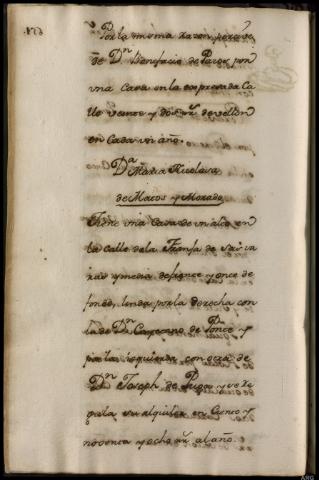 Por la misma razon percive
De Dn Bonifacio de Paror por
una Casa en la expresada Ca
lle veinte y dos rr. de vellon
en cada un año.
Da Maria Nicolasa
de Matos y Morado
Tiene una Casa de un alto en
la Calle de la Franja de seis va
ras y media de frente y once de
fondo, linda por la derecha con
la de Dn Cayetano de Ponte y
por la izquierda con otra de
Dn Joseph de y se re
gula su alquiler en Ciento y
noventa y ocho rr. al año.